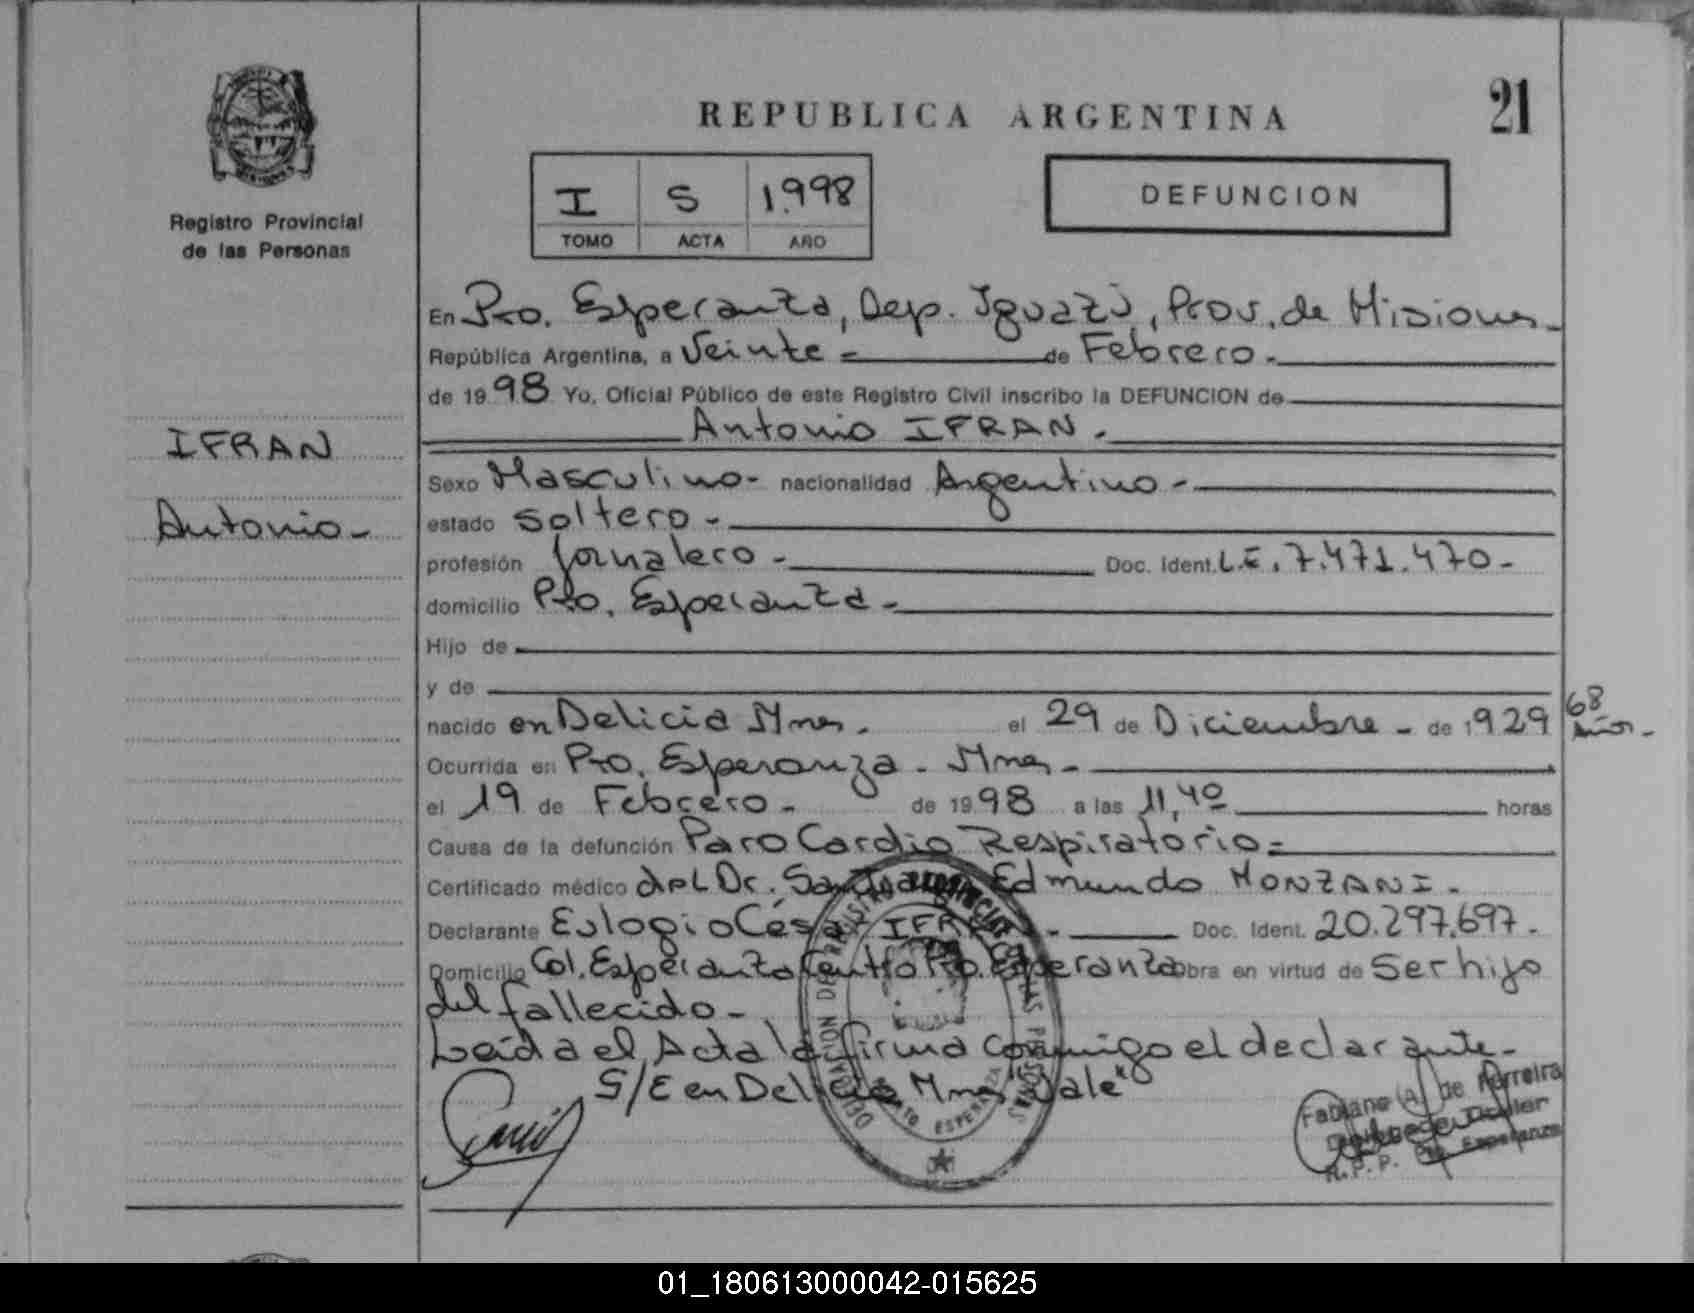 REPUBLICA ARGENTINA
21
I S 1.998
TOMO ACTA AÑO
DEFUNCION
Registro Provincial
de las Personas
IFRAN
Antonio -
En Pto. Esperanza, Dep. Iguazú, Prov. de Misiones -
República Argentina, a Veinte = de Febrero. -
de 1998 Yo, Oficial Público de este Registro Civil inscribo la DEFUNCION de
Antonio IFRAN. -
Sexo Masculino - nacionalidad Argentino -
estado Soltero -
profesión Jornalero - Doc. Ident. L.E. 7.471.470 -
domicilio Pto. Esperanza -
Hijo de
y de
nacido en Delicia Mnes. el 29 de Diciembre - de 1929 68 Años. -
Ocurrida en Pto. Esperanza - Mnes -
el 19 de Febrero - de 1998 a las 11,40 horas
Causa de la defunción Paro Cardio Respiratorio =
Certificado médico del Dr. Edmundo MONZANI -
Declarante Eulogio César IFRAN - Doc. Ident. 20.297.697 -
Domicilio Col. Esperanza Centro Pto. Esperanza obra en virtud de Ser hijo
del fallecido -
Leída el Acta la firma conmigo el declarante -
S/E en Delicia Mnes "Vale"
Fabiana A. de Ferreira
R.P.P. Pto Esperanza
DELEGACION DE REGISTRO PROVINCIAL DE LAS PERSONAS
PUERTO ESPERANZA
01_180613000042-015625